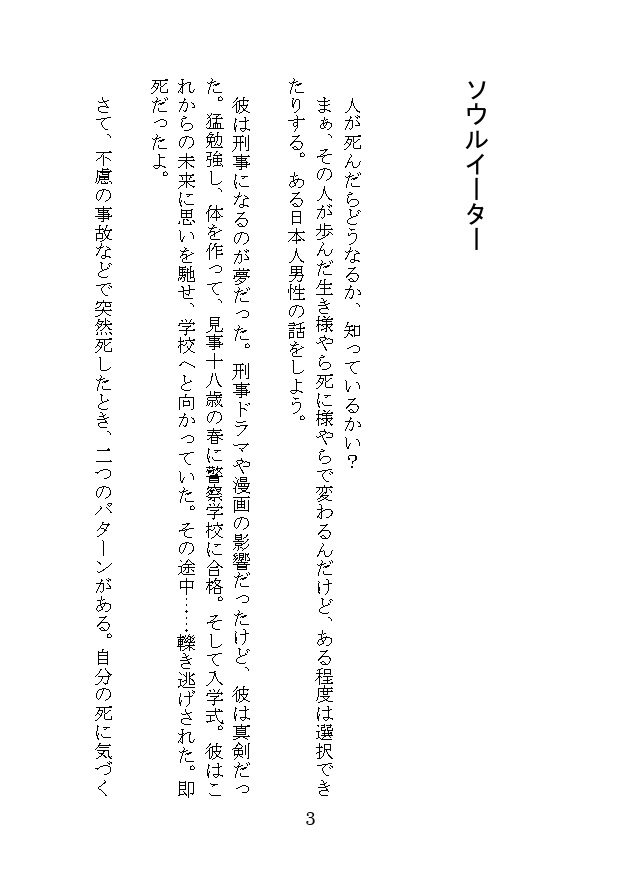 ソウルイーター
人が死んだらどうなるか、知っているかい？
まぁ、その人が歩んだ生き様やら死に様やらで変わるんだけど、ある程度は選択でき
たりする。ある日本人男性の話をしよう。
彼は刑事になるのが夢だった。刑事ドラマや漫画の影響だったけど、彼は真剣だっ
た。猛勉強し、体を作って、見事十八歳の春に警察学校に合格。そして入学式。彼はこ
れからの未来に思いを馳せ、学校へと向かっていた。その途中……轢き逃げされた。即
死だったよ。
さて、不慮の事故などで突然死したとき、二つのパターンがある。自分の死に気づく
3